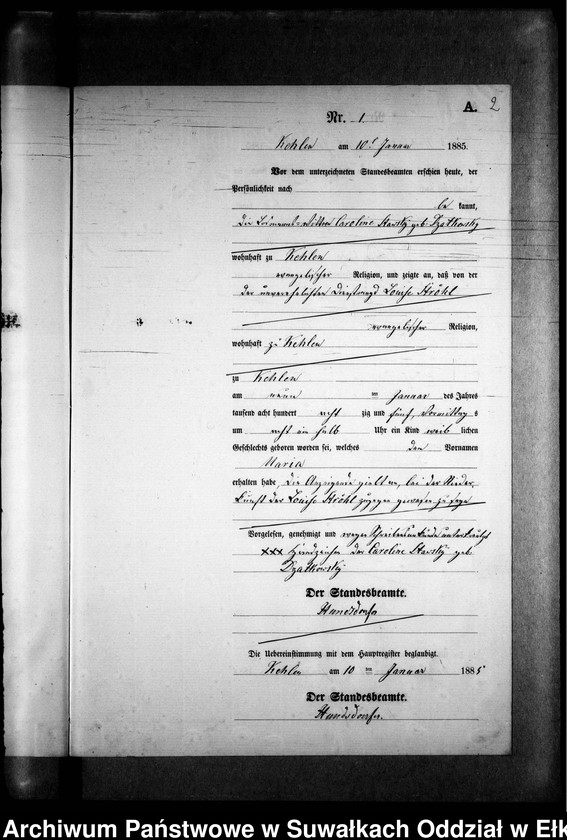 A. 2
Nr. 1.
Kehlen am 10t Januar 1885.
Vor dem unterzeichneten Standesbeamten erschien heute, der
Persönlichkeit nach
be kannt,
die Wittwe Caroline Stawsky geb. Dzatkowsky
wohnhaft zu Kehlen
evangelischer Religion, und zeigte an, daß von der
der unverehelichten Dienstmagd Louise Ströhl
evangelischer Religion,
wohnhaft zu Kehlen
zu Kehlen
am neun ten Januar des Jahres
tausend acht hundert acht zig und fünf, Vormittag s
um acht ein halb Uhr ein Kind weib lichen
Geschlechts geboren worden sei, welches den Vornamen
Maria
erhalten habe, die Anzeigende giebt an, bei der Nieder
kunft der Louise Ströhl zugegen gewesen zu sein
Vorgelesen, genehmigt und wegen Schreibensunkunde unterkreuzt
xxx Handzeichen der Caroline Stawsky geb.
Dzatkowsky
Der Standesbeamte.
Hundsdorfer
Die Uebereinstimmung mit dem Hauptregister beglaubigt.
Kehlen am 10 ten Januar 1885
Der Standesbeamte.
Hundsdorfer.
Archiwum Państwowe w Suwałkach Oddział w Ełk